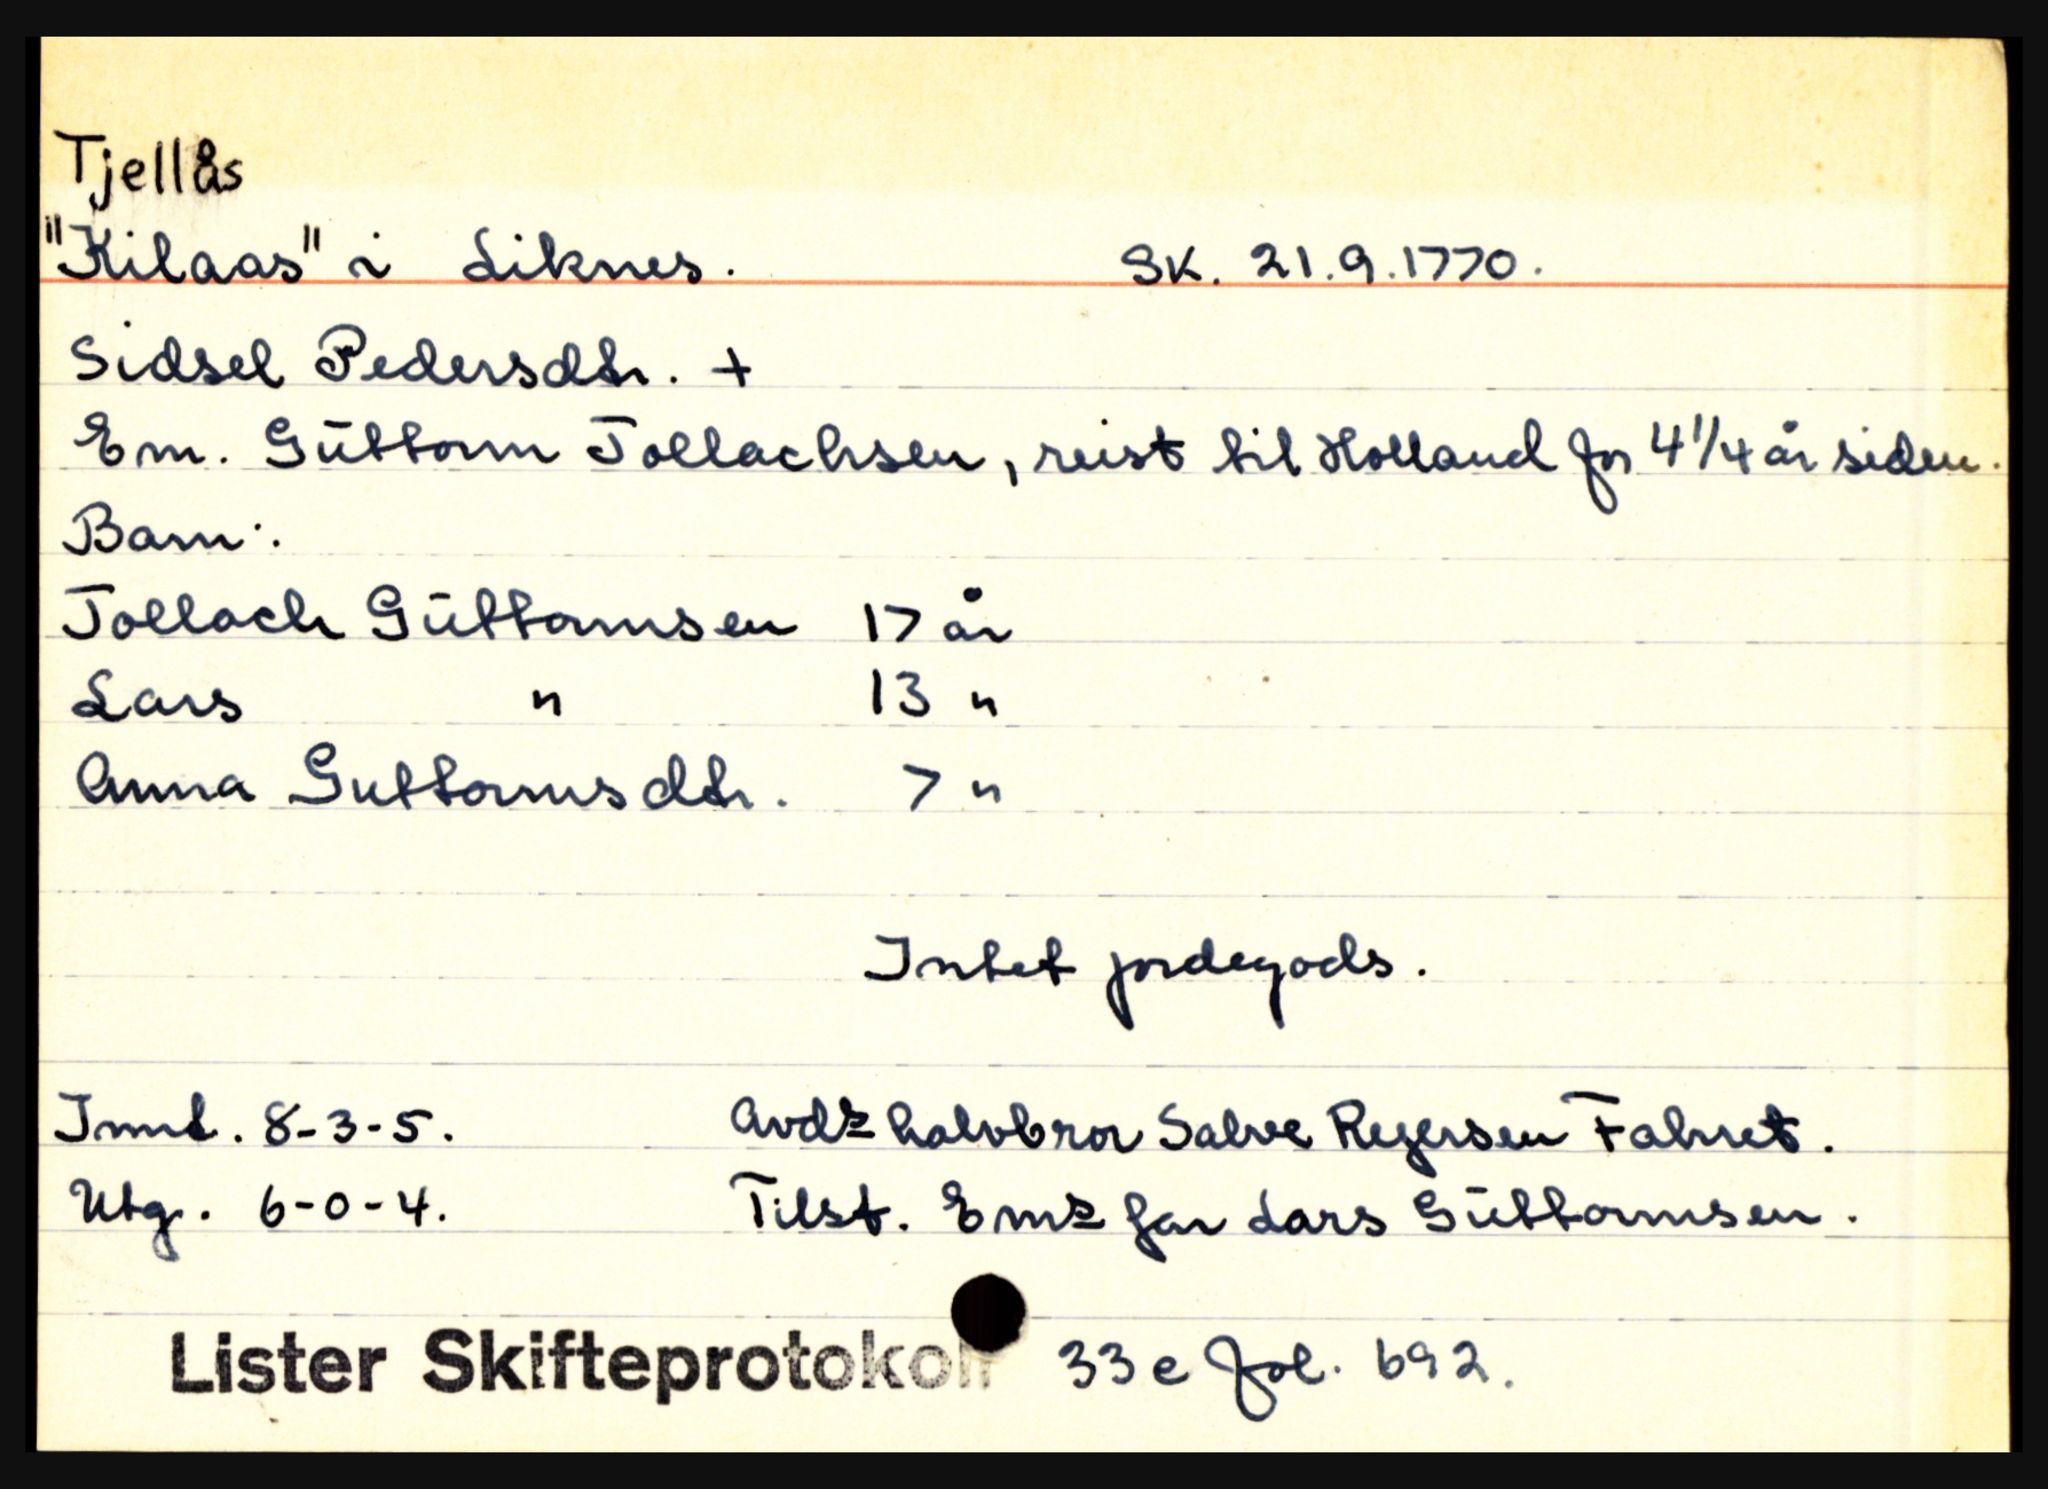 Tjellås
"Kilaas" i Liknes. SK. 21.9.1770.
Sidsel Pedersdtr. +
Em. Gūttorm Tollachsen, reist til Holland for 4 1/4 år siden.
Barn:
Tollach Gūttormsen 17 år
Lars " 13 "
Anna Guttormsdtr. 7 "
Intet jordegods.
Innt. 8-3-5. Avds halvbror Salve Regersen Fahret.
Utg. 6-0-4. Tilst. Ems far Lars Gūttormsen.
Lister Skifteprotokoll 33 c fol. 692.